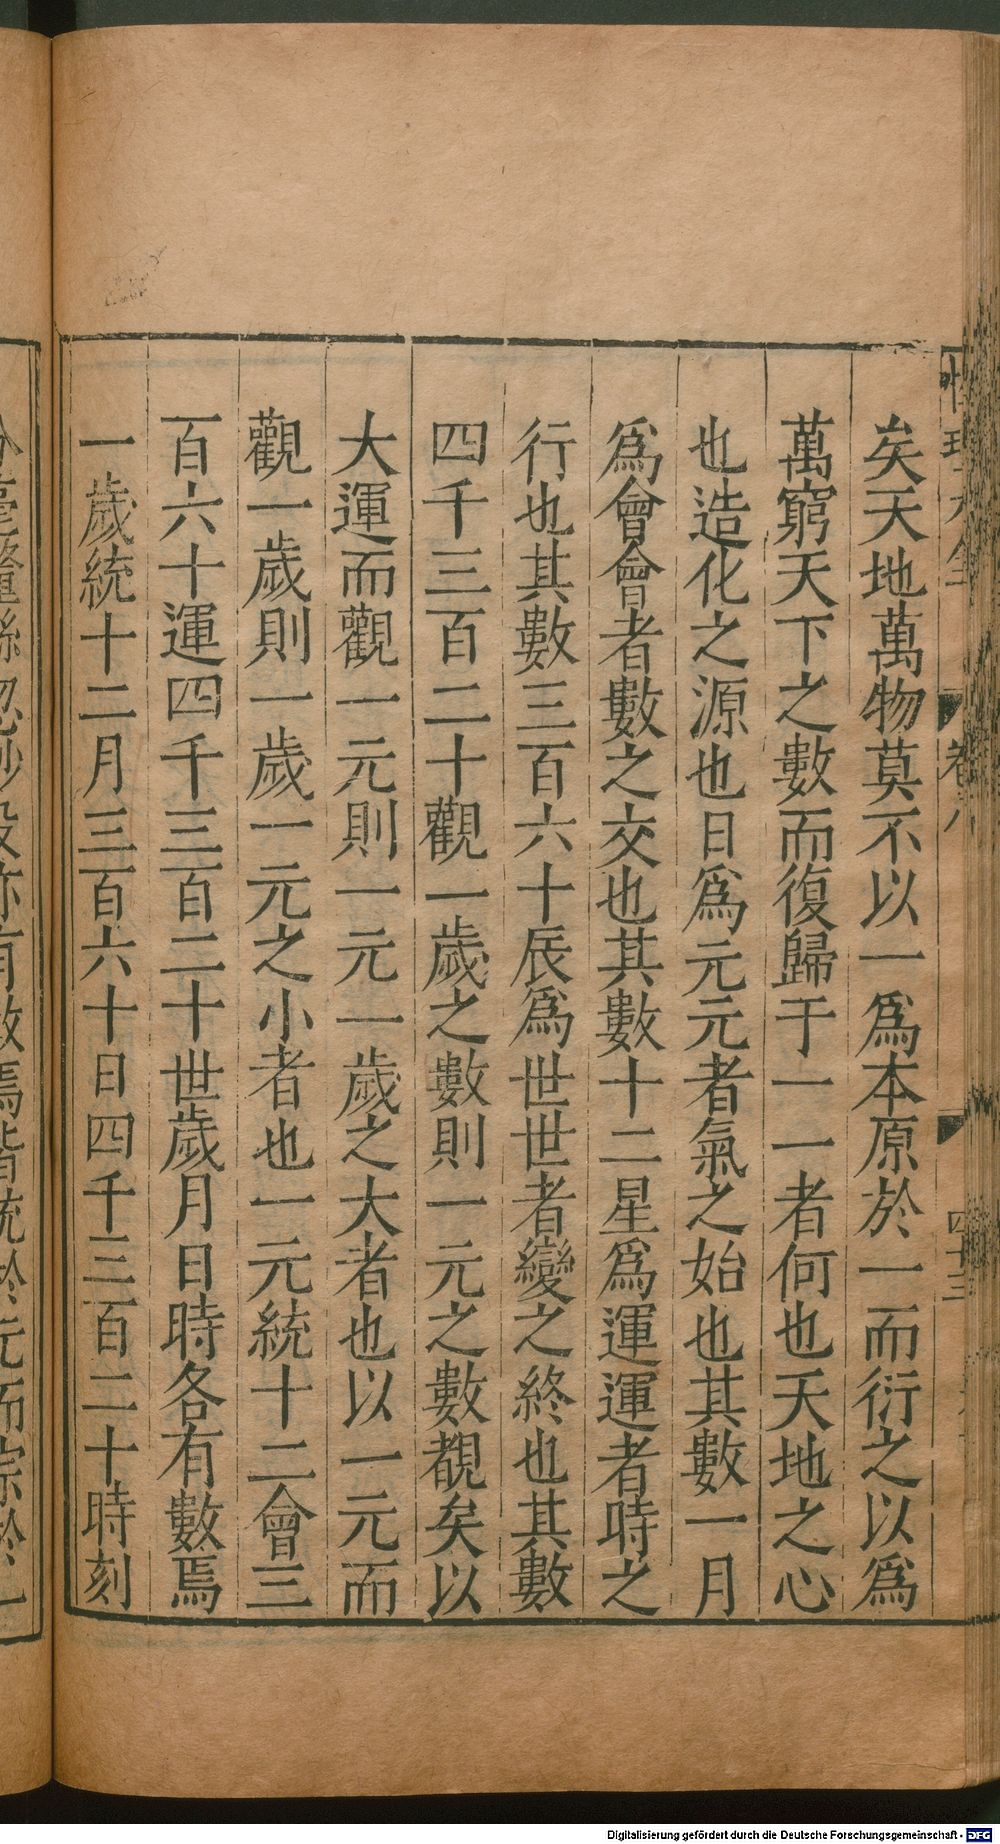 性理大全
卷八
四十三
矣天地萬物莫不以一爲本原於一而衍之以爲
萬窮天下之數而復歸于一一者何也天地之心
也造化之源也日爲元元者氣之始也其數一月
爲會會者數之交也其數十二星爲運運者時之
行也其數三百六十辰爲世世者變之終也其數
四千三百二十觀一歲之數則一元之數覩矣以
大運而觀一元則一元一歲之大者也以一元而
觀一歲則一歲一元之小者也一元統十二會三
百六十運四千三百二十世歲月日時各有數焉
一歲統十二月三百六十日四千三百二十時刻
分毫釐絲忽眇沒亦有數焉皆統於元而宗於一
Digitalisierung gefördert durch die Deutsche Forschungsgemeinschaft - DFG